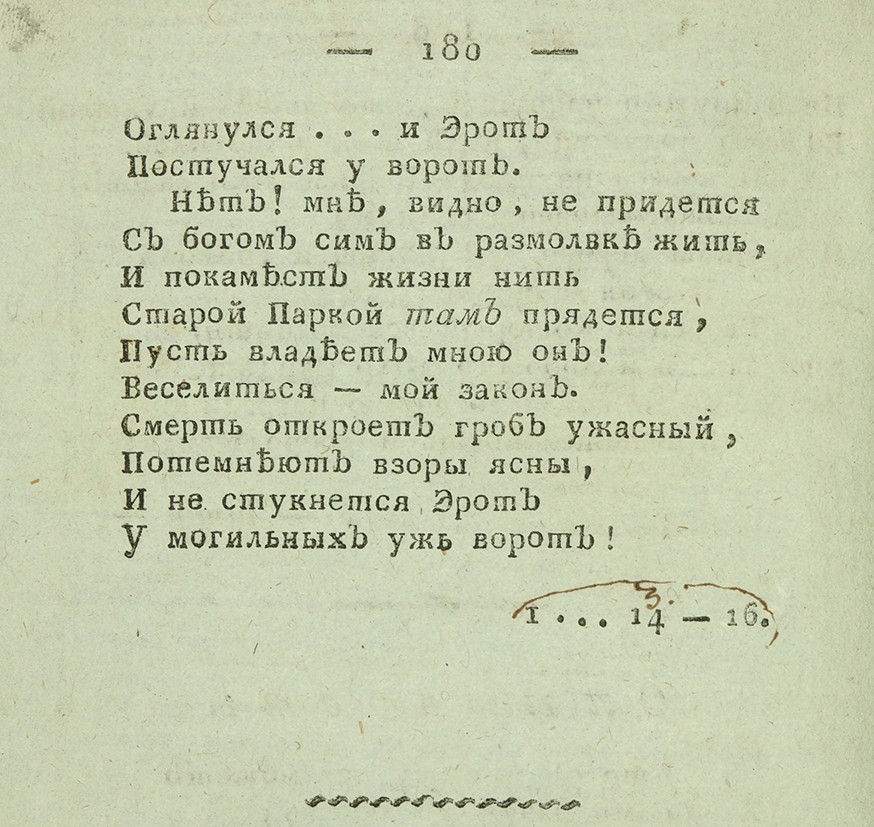 — 180 —
Оглянулся . . . и Эротъ
Постучался у воротъ.
Нѣтъ! мнѣ, видно, не придется
Съ богомъ симъ въ размолвкѣ жить,
И покамѣстъ жизни нить
Старой Паркой тамъ прядется,
Пусть владѣетъ мною онъ!
Веселиться — мой законъ.
Смерть откроетъ гробъ ужасный,
Потемнѣютъ взоры ясны,
И не стукнется Эротъ
У могильныхъ ужь воротъ!
3.
1 . . . 14 — 16.